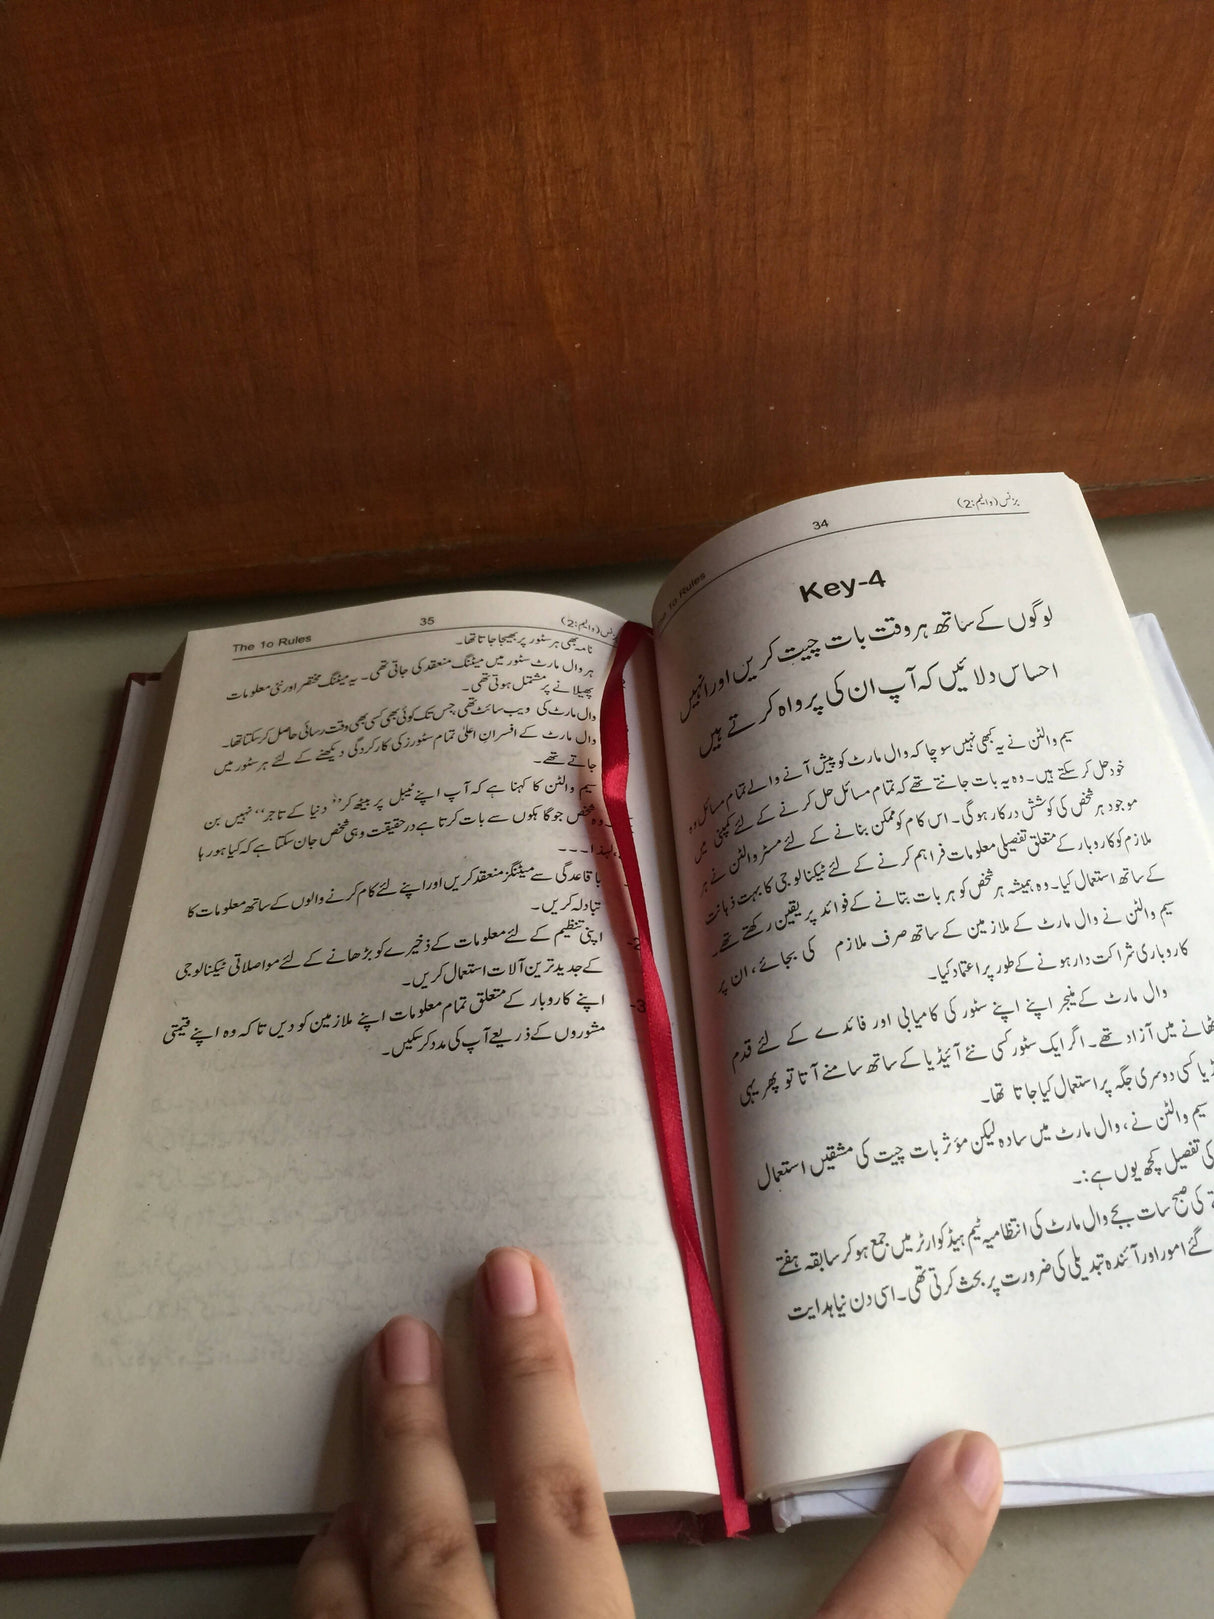 بزنس (والیم:2)
34
The 1o Rules
Key-4
لوگوں کے ساتھ ہر وقت بات چیت کریں اور انہیں
احساس دلائیں کہ آپ ان کی پرواہ کرتے ہیں
سیم والٹن نے یہ کبھی نہیں سوچا کہ وال مارٹ کو پیش آنے والے تمام مسائل وہ
خود حل کر سکتے ہیں۔ وہ یہ بات جانتے تھے کہ تمام مسائل حل کرنے کے لئے کمپنی میں
موجود ہر شخص کی کوشش درکار ہوگی۔ اس کام کو ممکن بنانے کے لئے مسٹر والٹن نے ہر
ملازم کو کاروبار کے متعلق تفصیلی معلومات فراہم کرنے کے لئے ٹیکنالوجی کا بہت ذہانت
کے ساتھ استعمال کیا۔ وہ ہمیشہ ہر شخص کو ہر بات بتانے کے فوائد پر یقین رکھتے تھے۔
سیم والٹن نے وال مارٹ کے ملازمین کے ساتھ صرف ملازم کی بجائے، ان پر
کاروباری شراکت دار ہونے کے طور پر اعتماد کیا۔
وال مارٹ کے منیجر اپنے اپنے سٹور کی کامیابی اور فائدے کے لئے قدم
ٹھانے میں آزاد تھے۔ اگر ایک سٹور کسی نئے آئیڈیا کے ساتھ سامنے آتا تو پھر یہی
ڈیا کسی دوسری جگہ پر استعمال کیا جاتا تھا۔
سیم والٹن نے، وال مارٹ میں سادہ لیکن مؤثر بات چیت کی مشقیں استعمال
کی تفصیل کچھ یوں ہے:۔
کی صبح سات بجے وال مارٹ کی انتظامیہ ٹیم ہیڈ کوارٹر میں جمع ہو کر سابقہ ہفتے
گئے امور اور آئندہ تبدیلی کی ضرورت پر بحث کرتی تھی۔ اسی دن نیا ہدایت
بزنس (والیم:2)
35
The 1o Rules
نامہ بھی ہر سٹور پر بھیجا جاتا تھا۔
ہر وال مارٹ سٹور میں میٹنگ منعقد کی جاتی تھی۔ یہ میٹنگ مختصر اور نئی معلومات
پھیلانے پر مشتمل ہوتی تھی۔
وال مارٹ کی ویب سائٹ تھی جس تک کوئی بھی کسی بھی وقت رسائی حاصل کر سکتا تھا۔
وال مارٹ کے افسرانِ اعلیٰ تمام سٹورز کی کارکردگی دیکھنے کے لئے ہر سٹور میں
جاتے تھے۔
سیم والٹن کا کہنا ہے کہ آپ اپنے ٹیبل پر بیٹھ کر ’’دنیا کے تاجر‘‘ نہیں بن
وہ شخص جو گاہکوں سے بات کرتا ہے در حقیقت وہی شخص جان سکتا ہے کہ کیا ہو رہا
لہٰذا۔۔۔
باقاعدگی سے میٹنگز منعقد کریں اور اپنے لئے کام کرنے والوں کے ساتھ معلومات کا
تبادلہ کریں۔
2- اپنی تنظیم کے لئے معلومات کے ذخیرے کو بڑھانے کے لئے مواصلاتی ٹیکنالوجی
کے جدید ترین آلات استعمال کریں۔
3- اپنے کاروبار کے متعلق تمام معلومات اپنے ملازمین کو دیں تاکہ وہ اپنے قیمتی
مشوروں کے ذریعے آپ کی مدد کر سکیں۔